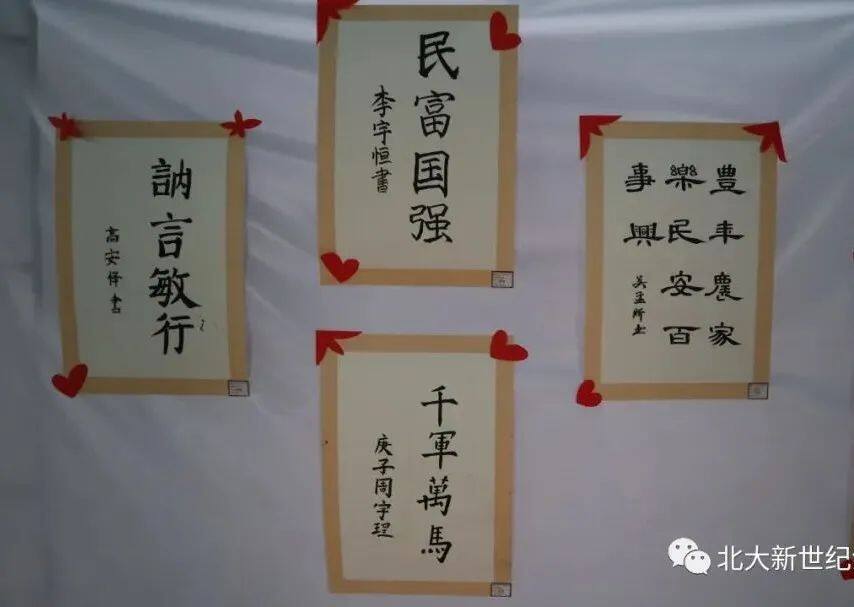 訥言敏行
高安怿書
民富国强
李宇恒書
千軍萬馬
庚子周宇珵
豐年農家
樂民安百
事興
北大新世纪